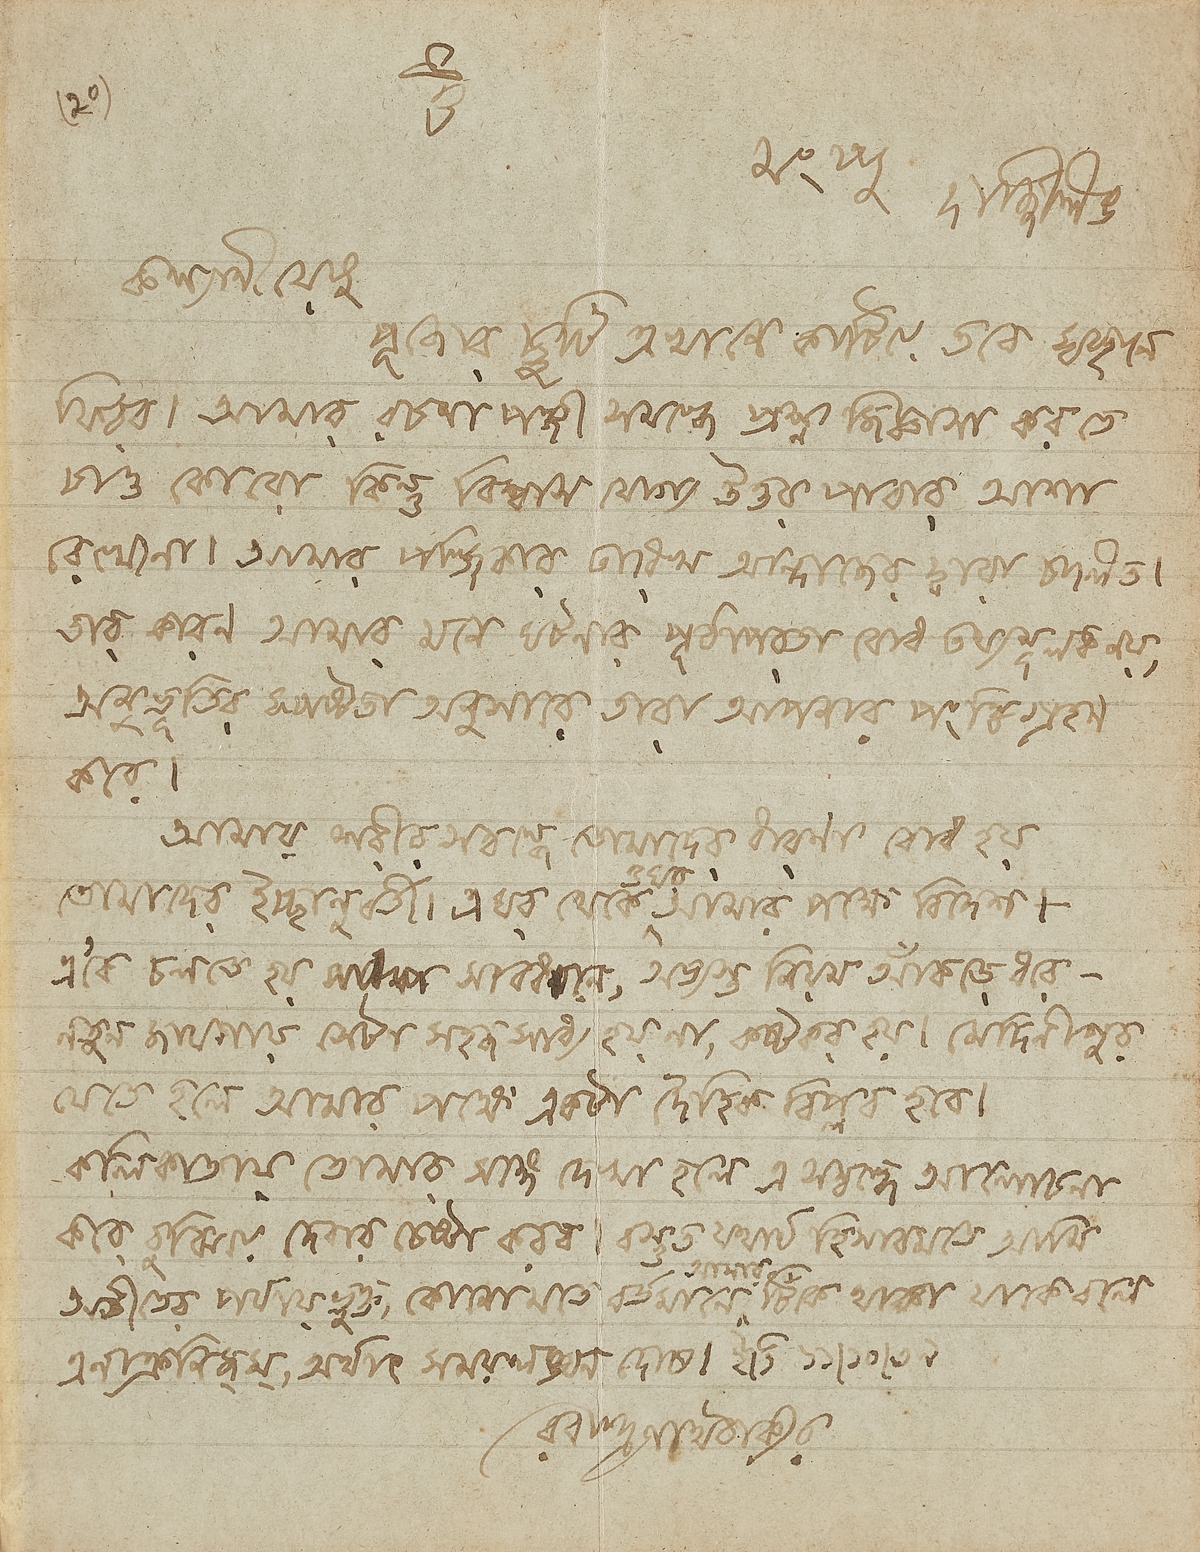 (২০)
ওঁ
মংপু
দার্জিলিঙ
কল্যাণীয়েষু
পূজোর ছুটি এখানে কাটিয়ে তবে স্বস্থানে
ফিরব। আমার রচনাপঞ্জী সম্বন্ধে প্রশ্ন জিজ্ঞাসা করতে
চাও কোরো কিন্তু বিশ্বাসযোগ্য উত্তর পাবার আশা
রেখোনা। আমার পঞ্জিকার তারিখ আন্দাজের দ্বারা চালিত।
তার কারণ আমার মনে ঘটনার পূর্বাপরতা বোধ তথ্যমূলক নয়,
অনুভূতির স্পষ্টতা অনুসারে তারা আপনার পংক্তি গ্রহণ
করে।
আমার শরীর সম্বন্ধে তোমাদের ধারণা বোধ হয়
তোমাদের ইচ্ছানুবর্তী। এঘর থেকে ওঘর আমার পক্ষে বিদেশ।
একে চলতে হয় সাবধানে, অভ্যস্ত নিয়ম আঁকড়ে ধরে –
নতুন জায়গায় সেটা সহজসাধ্য হয় না, কষ্টকর হয়। মেদিনীপুর
যেতে হলে আমার পক্ষে একটা দৈহিক বিপ্লব হবে।
কলিকাতায় তোমার সঙ্গে দেখা হলে এ সম্বন্ধে আলোচনা
করে বুঝিয়ে দেবার চেষ্টা করব। বস্তুত যথার্থ হিসাবমতে আমি
অতীতের পর্য্যায়ভুক্ত, কোনোমতে বর্তমানে আমার টিঁকে থাকা যাকে বলে
এনাক্রনিজ্‌ম্, অর্থাৎ সময়লঙ্ঘন দোষ। ইতি ১১|১০|৩৯
রবীন্দ্রনাথ ঠাকুর